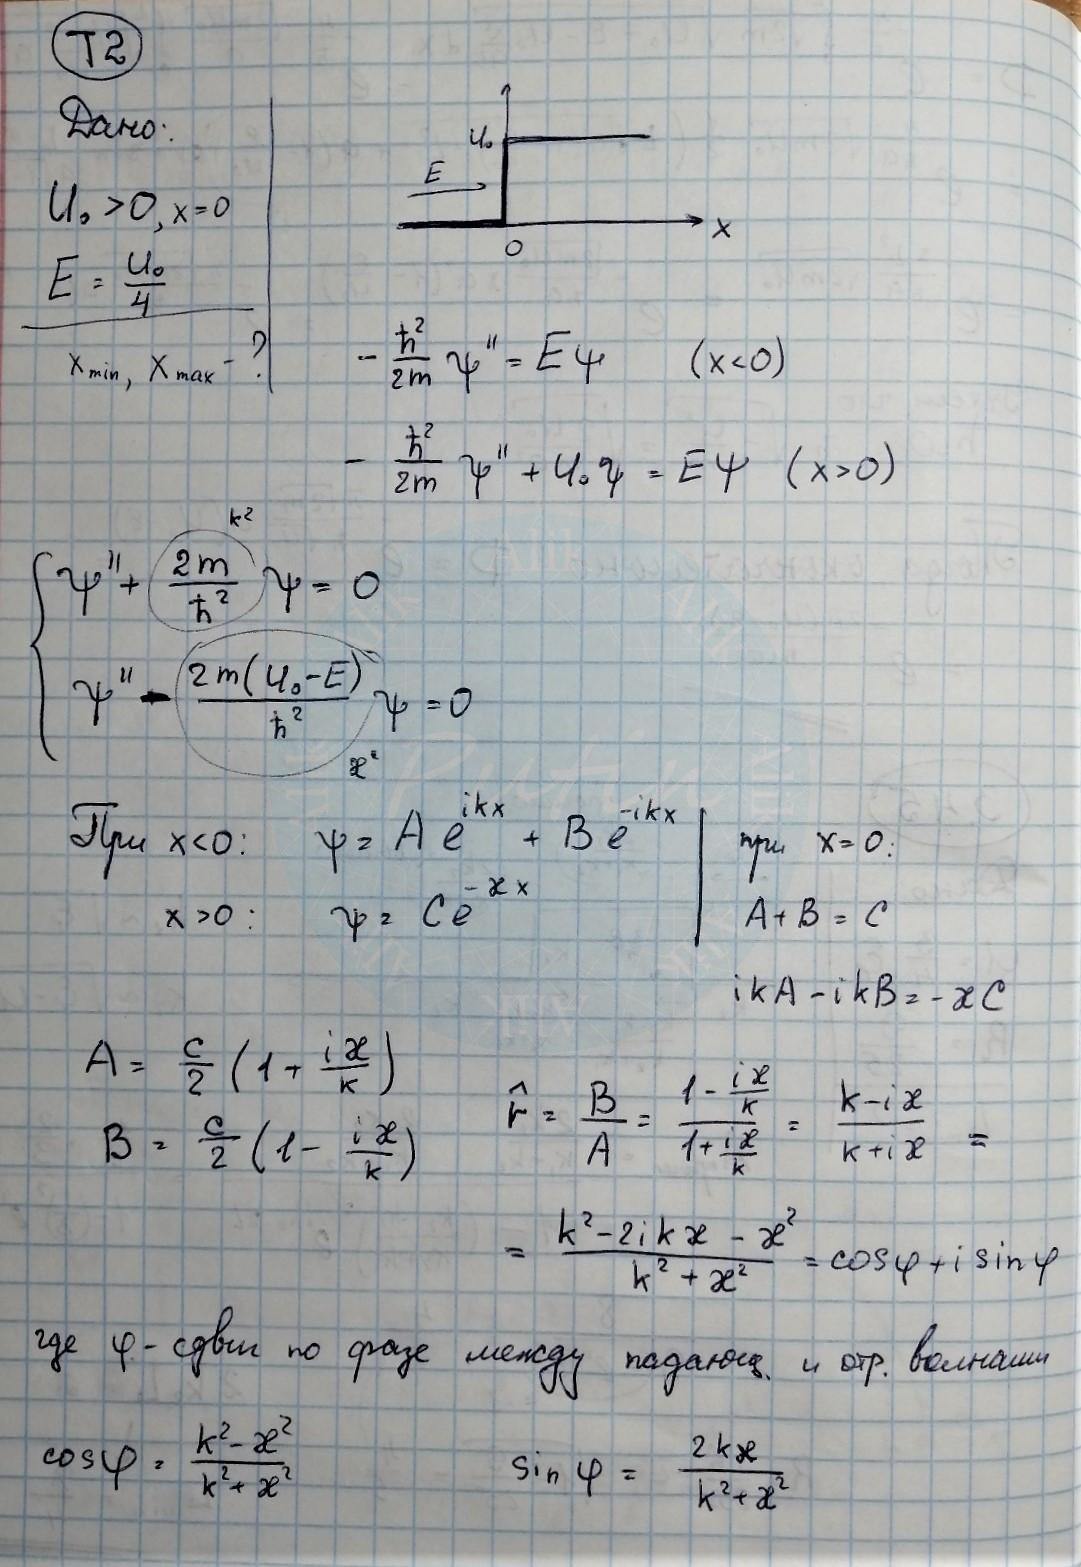 T2
Дано:
U₀ > 0, x=0
E = U₀/4
x_min, x_max - ?
U₀
E
x
0
- ħ²/2m ψ'' = Eψ (x<0)
- ħ²/2m ψ'' + U₀ψ = Eψ (x>0)
k²
ψ'' + 2m/ħ² ψ = 0
ψ'' - 2m(U₀-E)/ħ² ψ = 0
æ²
При x<0: ψ = Ae^{ikx} + Be^{-ikx}
x>0: ψ = Ce^{-æx}
при x=0:
A+B = C
ikA - ikB = -æC
A = C/2 (1 + iæ/k)
B = C/2 (1 - iæ/k)
r̂ = B/A = (1 - iæ/k)/(1 + iæ/k) = (k-iæ)/(k+iæ) =
= (k² - 2ikæ - æ²)/(k² + æ²) = cosφ + i sinφ
где φ - сдвиг по фазе между падающ. и отр. волнами
cosφ = (k²-æ²)/(k²+æ²) sin φ = 2kæ/(k²+æ²)